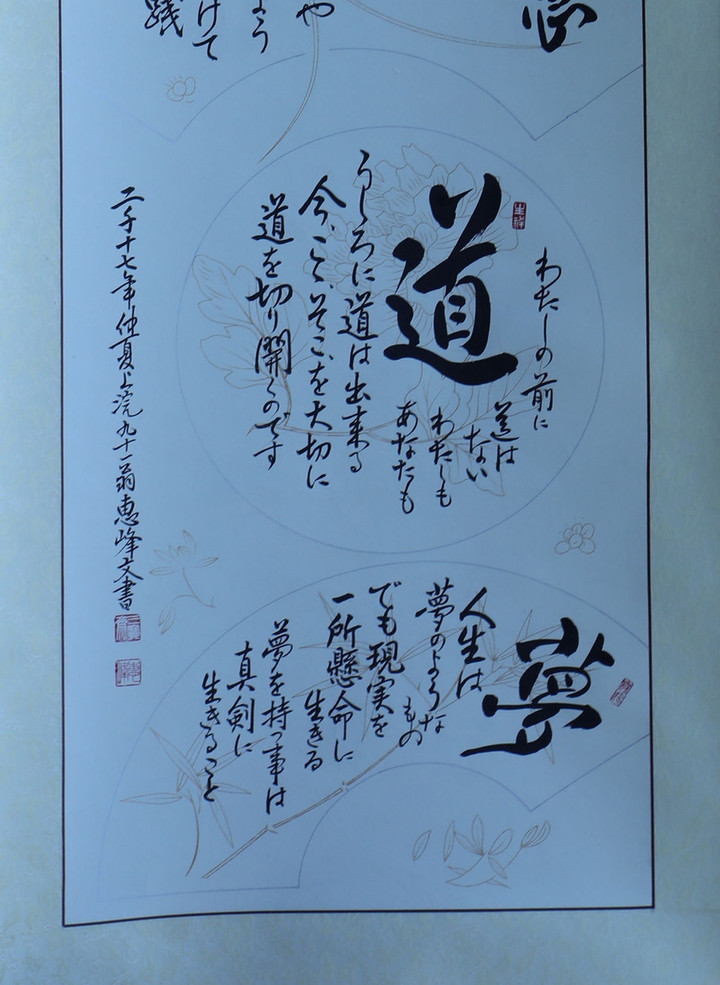 や
よう
けて
道
わたしの前に
道は
ない
わたしも
あなたも
うしろに道は出来る
今、こゝ、そこ、を大切に
道を切り開くのです
夢
人生は
夢のような
もの
でも現実を
一所懸命に
生きる
夢を持つ事は
真剣に
生きること
二千十七年仲夏上浣九十一翁恵峰文書